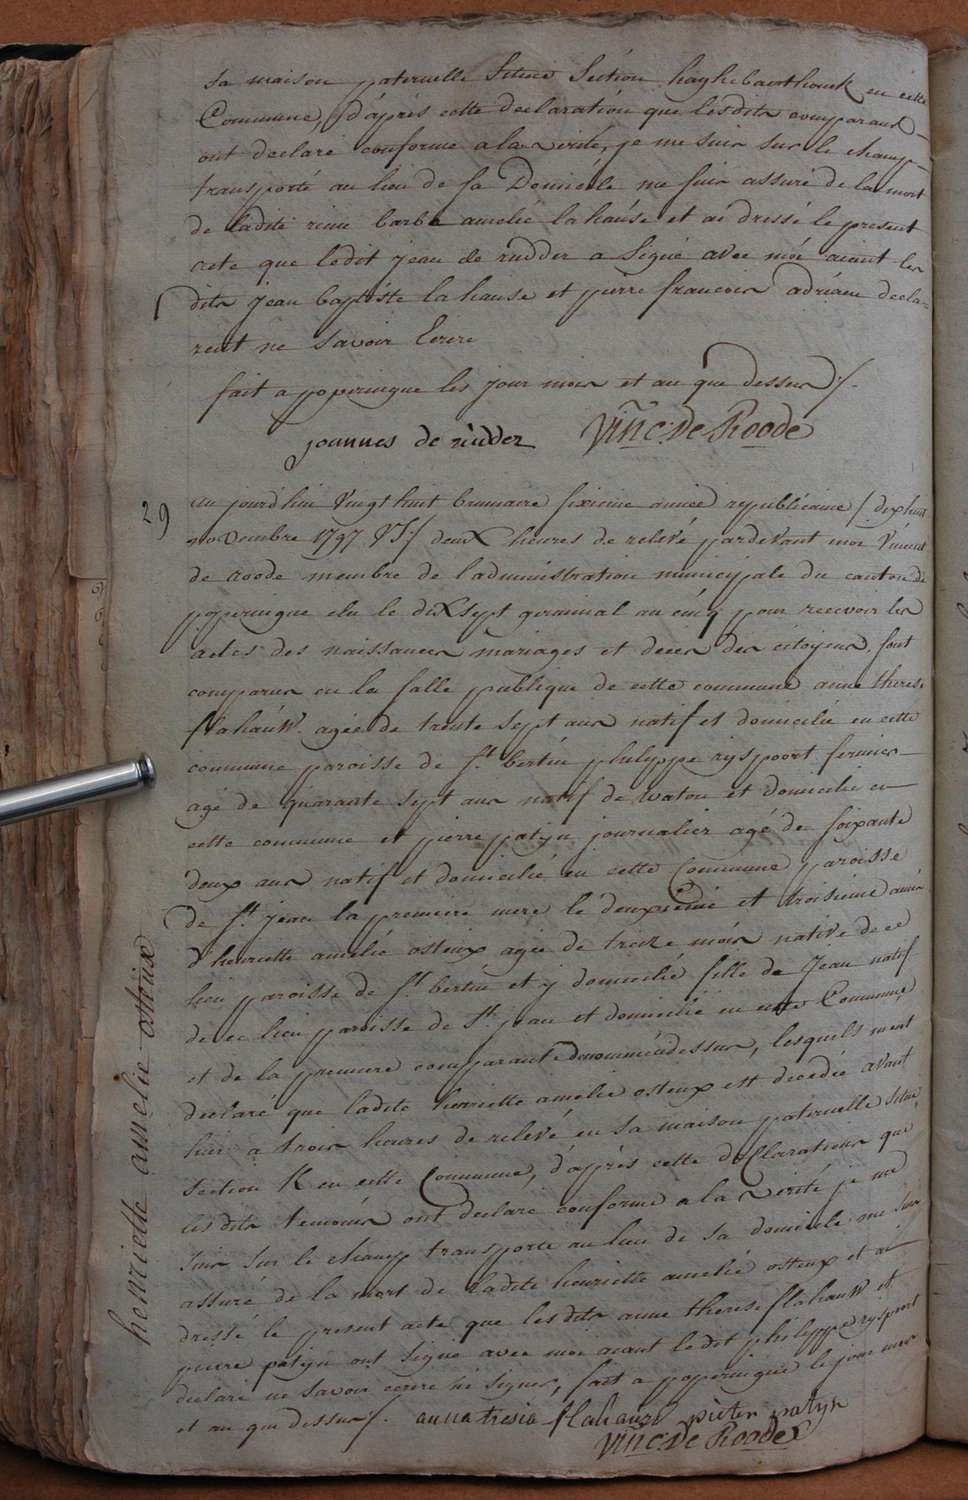 sa maison paternelle situee Séction haghebaerthouck en cette
Commune, d'après cette declaration que lesdits comparans
ont declaré conforme a la verité, je me suis sur le champ
transporté au lieu de sa Domicile me suis assuré de la mort
de ladite barbe amelie lahaúse et ai dressé le present
acte que ledit jean de rudder a Signé avec moi aiant les
dits jean baptiste lahause et pierre francois adriaen decla-
rent ne savoir Ecrire
fait a poperingue les jour mois et an que dessus /.
joannes de rúdder Vinc. De Roode
29
au jourd'hui Vingt huit brumaire sixieme année republicaine / dix huit
novembre 1797 VS / deux heures de relevé pardevant moi Vincent
de roode membre de l'administration municipale du canton de
poperingue elu le dix sept germinal an cinq pour recevoir les
actes des naissances mariages et deces des citoyens, sont
comparus en la salle publique de cette commune anne therese
flahauw agée de trente sept ans natif et domiciliée en cette
commune paroisse de St. bertin philippe ryspoort fermier
agé de quarante sept ans natif de watou et domicilié en
cette commune et pierre patyn journalier agé de soixante
deux ans natif et domicilié en cette Commune paroisse
de St. jean la premiere mere le deuxieme et troisieme amis
d'henriette amelie osteux agée de treize mois native de ce
lieu paroisse de St. bertin et y domicilié fille de Jean natif
de ce lieu paroisse de St. jean et domicilié en cette Commune,
et de la premiere comparante denommée dessus, lesquels m'ont
declaré que ladite henriette amelie osteux est decedée avant
hier a trois heures de relevé en sa maison paternelle située
section K en cette Commune, d'après cette declaration que
lesdits temoins ont declaré conforme a la verité je me
suis sur le champ transporté au lieu de sa domicile me suis
assuré de la mort de ladite henriette amelie osteux et ai
dressé le present acte que lesdits anne therese flahauw et
pierre patyn ont signé avec moi aiant ledit philippe ryspoort
declaré ne savoir ecrire ni signer, fait a poperingue le jour mois
et an que dessus /. anna tresia flahauw pieter patyn
Vinc. De Roode
henriette amelie osteux